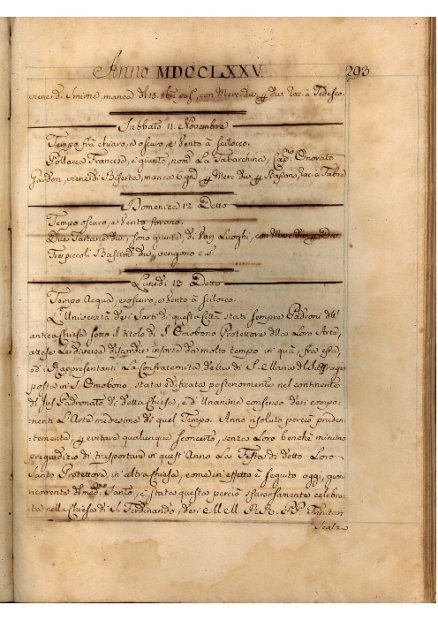 Anno MDCCLXXV. 293
viene di Smirne, manca di 15. con Merc. div. rac. à Tedesco.
Sabbato 11. Novembre
Tempo frà chiaro, e oscuro, e Vento à Scilocco.
Pollacca Francese, è giunta, nom. La Tabarchina, Cap.no Onorato
viene di Biserta, manca 6 gni Merc. div. Bassano, rac. à
Domenica 12 Detto
Tempo oscuro, e Vento
Due Tartane div. sono giunte di Luoghi, con Merc. div.
Tre piccoli div. vengono
Lunedi 13 Detto
Tempo Acqua, e oscuro, e Vento à Scilocco.
L'Università de Sarti di questa Città stati sempre Padroni dell'
antica Chiesa sotto il titolo di S. Omobono Protettore della Loro Arte,
attese Le diverse discordie insorte da molto tempo in quà, frà essa,
ed i Rappresentanti La Confraternita detta di S. M.a del Suffragio
posta in S. Omobono, stata edificata posteriormente nel continente
di Jus Padronato di detta Chiesa, ed Unanime consenso dei compo=
nenti L'Arte medesima di quel Tempo. Anno risoluto perciò pruden=
temente, p evitare qualunque sconcerto, senza Loro benche minimo
pregiudizio di trasportare in quest'Anno La Festa di detto Loro
Santo Protettore, in altra Chiesa, come in effetto è seguito oggi, giorno
ricorente di med.mo Santo, è stata questa perciò sfarzosamente celebra=
ta nella Chiesa di S. Ferdinando, de M M. R R. PP. Trinitari
Scalz=